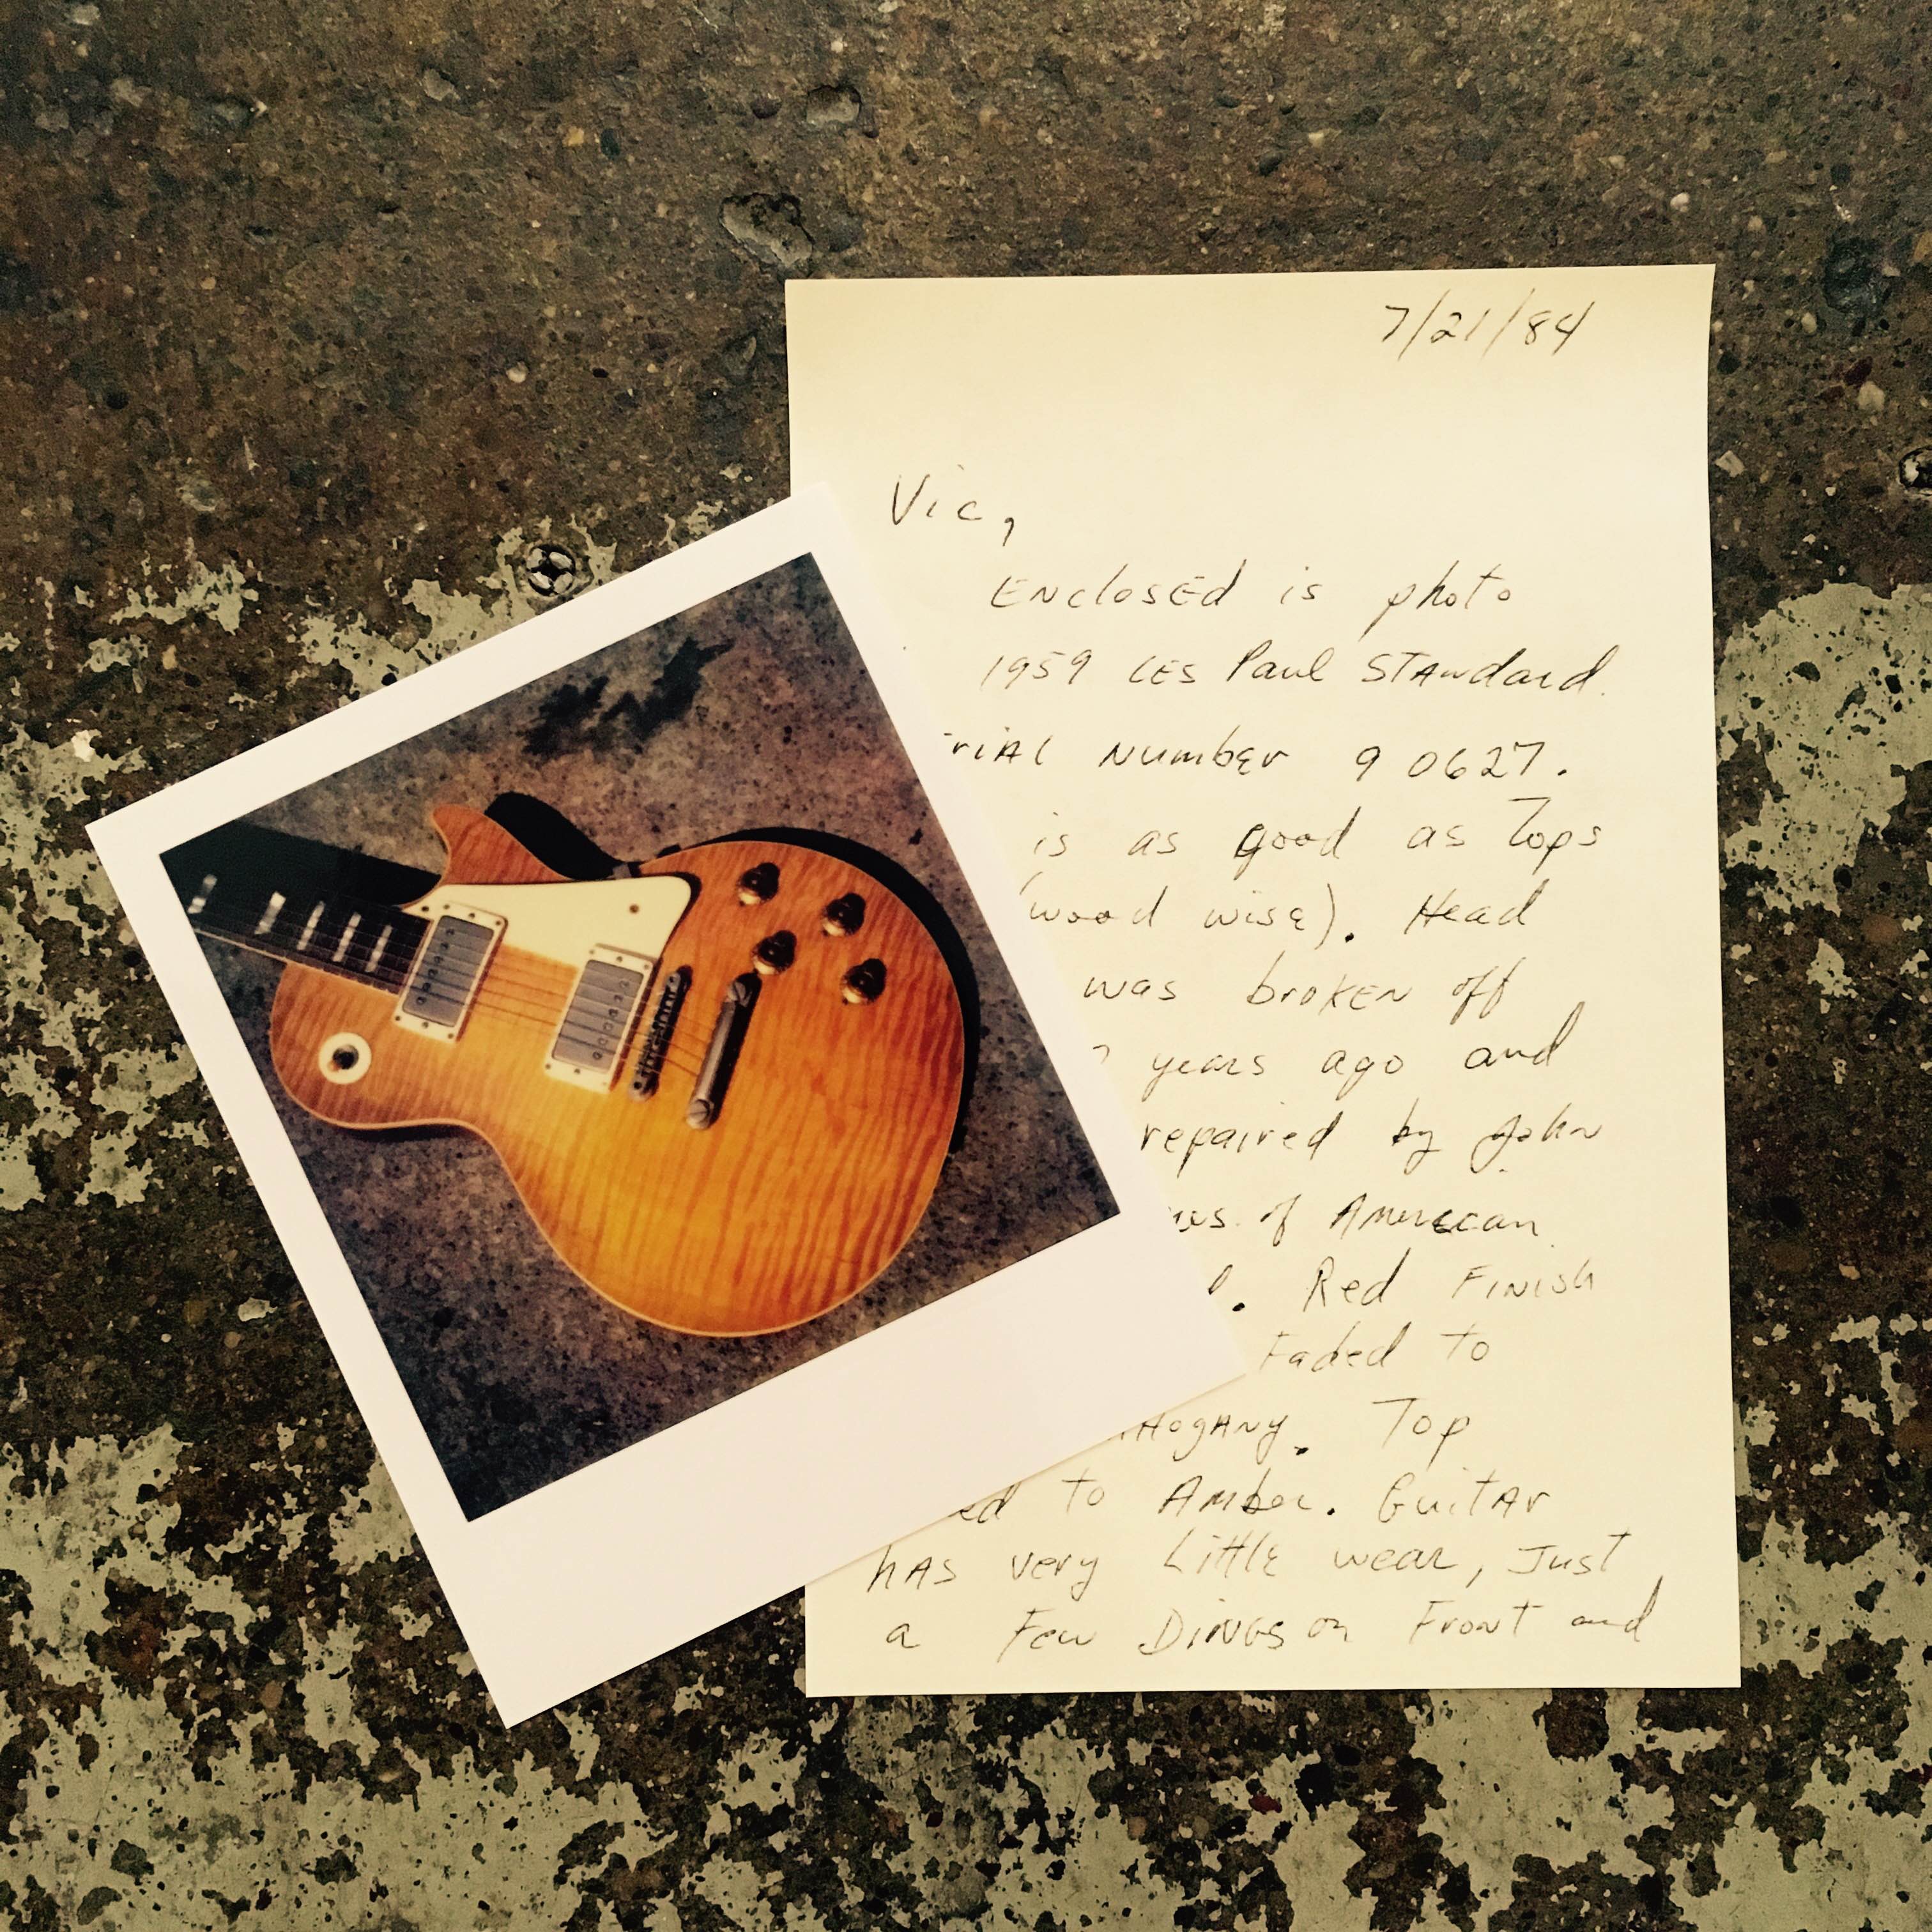 7/21/84
Vic,
Enclosed is photo
1959 Les Paul Standard.
rial Number 9 0627.
is as good as Tops
(wood wise). Head
was broken off
years ago and
repaired by John
of American
. Red Finish
Faded to
hogany. Top
ed to Amber. Guitar
has very Little wear, Just
a Few Dings on Front and